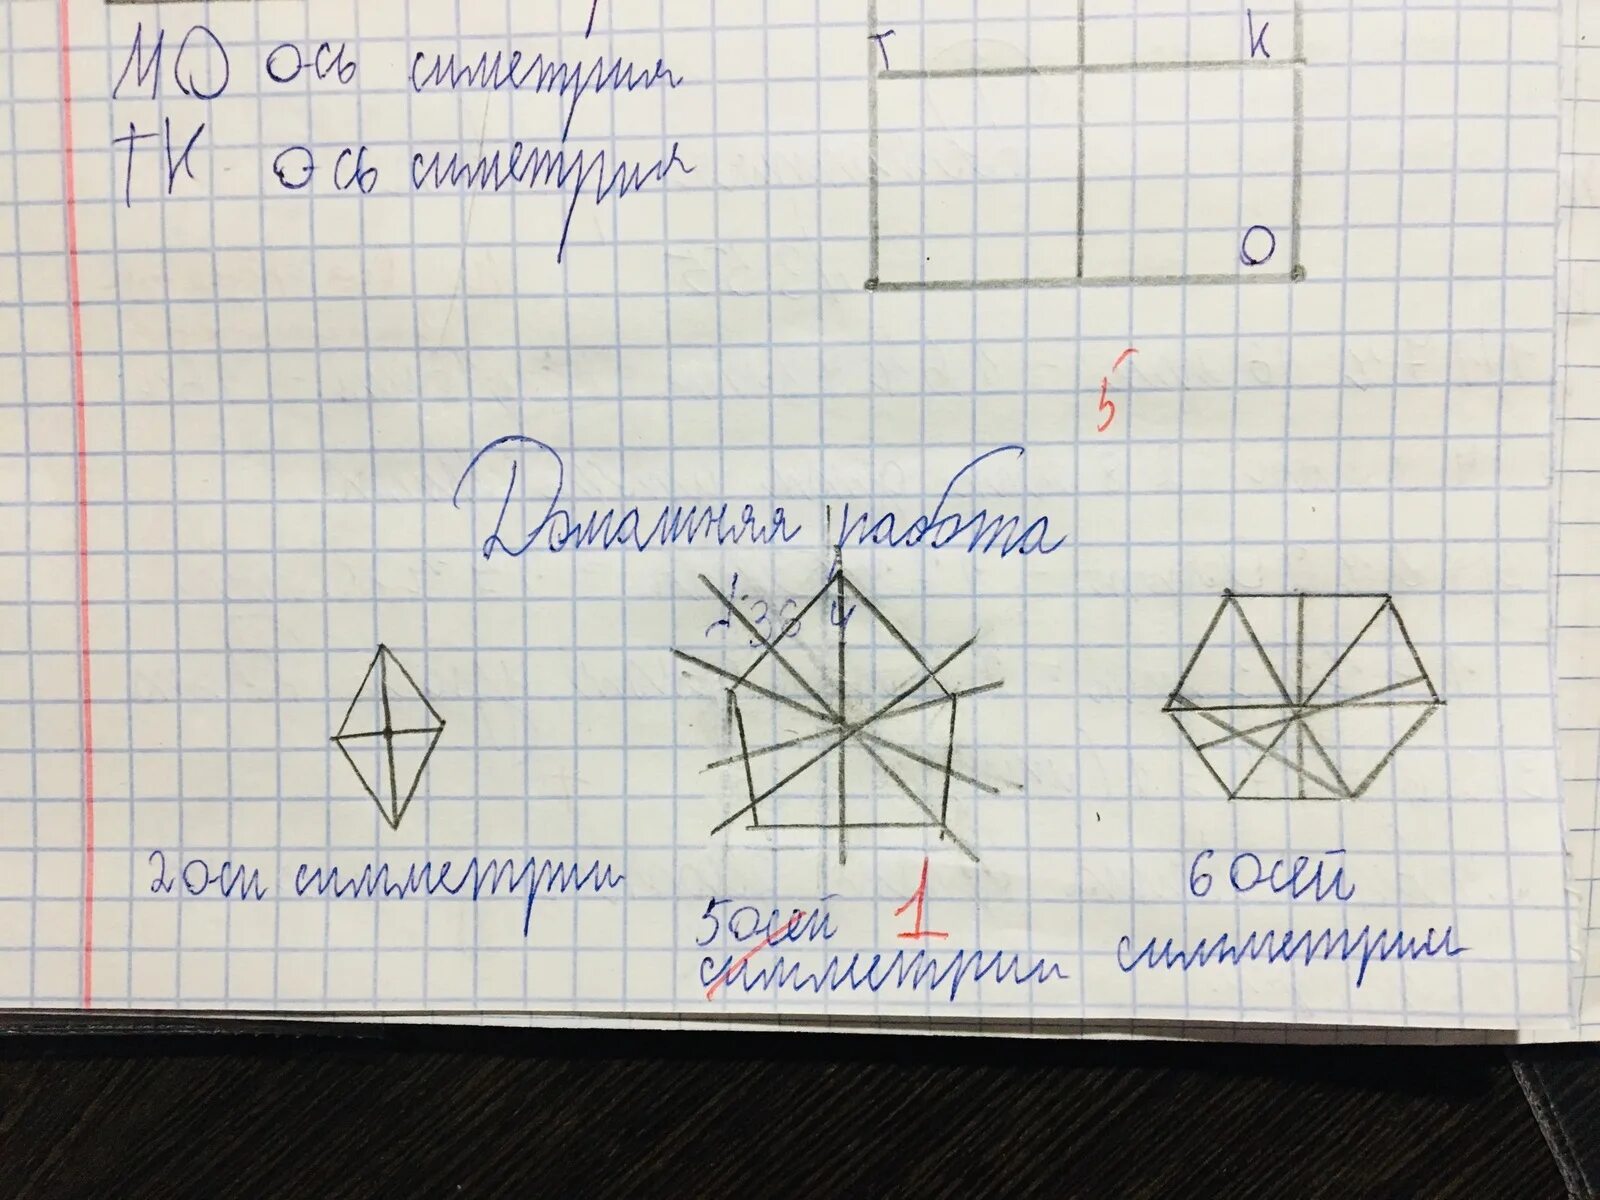 МО ось симетрия
ТК ось симетрия
Т
К
О
5-
Домашняя работа
2 оси симметрии
5 осей
симметрии
1
6 осей
симметрии